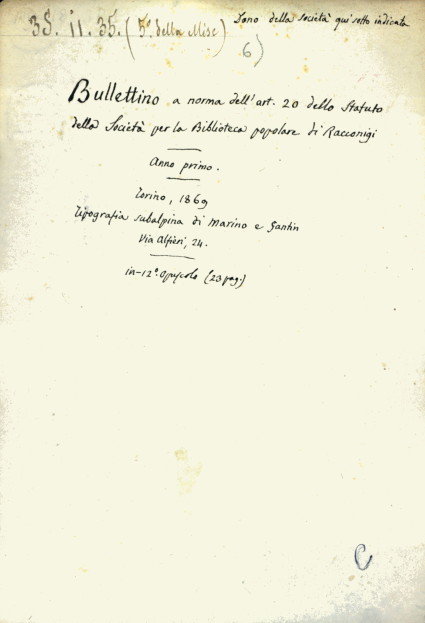 Dono della Società quì sotto indicata
38. 11. 35. (5ª della Misc)
6)
Bullettino a norma dell'art. 20 dello Statuto
della Società per la Biblioteca popolare di Racconigi
Anno primo.
Torino, 1869
Tipografia subalpina di Marino e Gantin
Via Alfieri, 24.
in-12º Opuscolo (23 pag.)